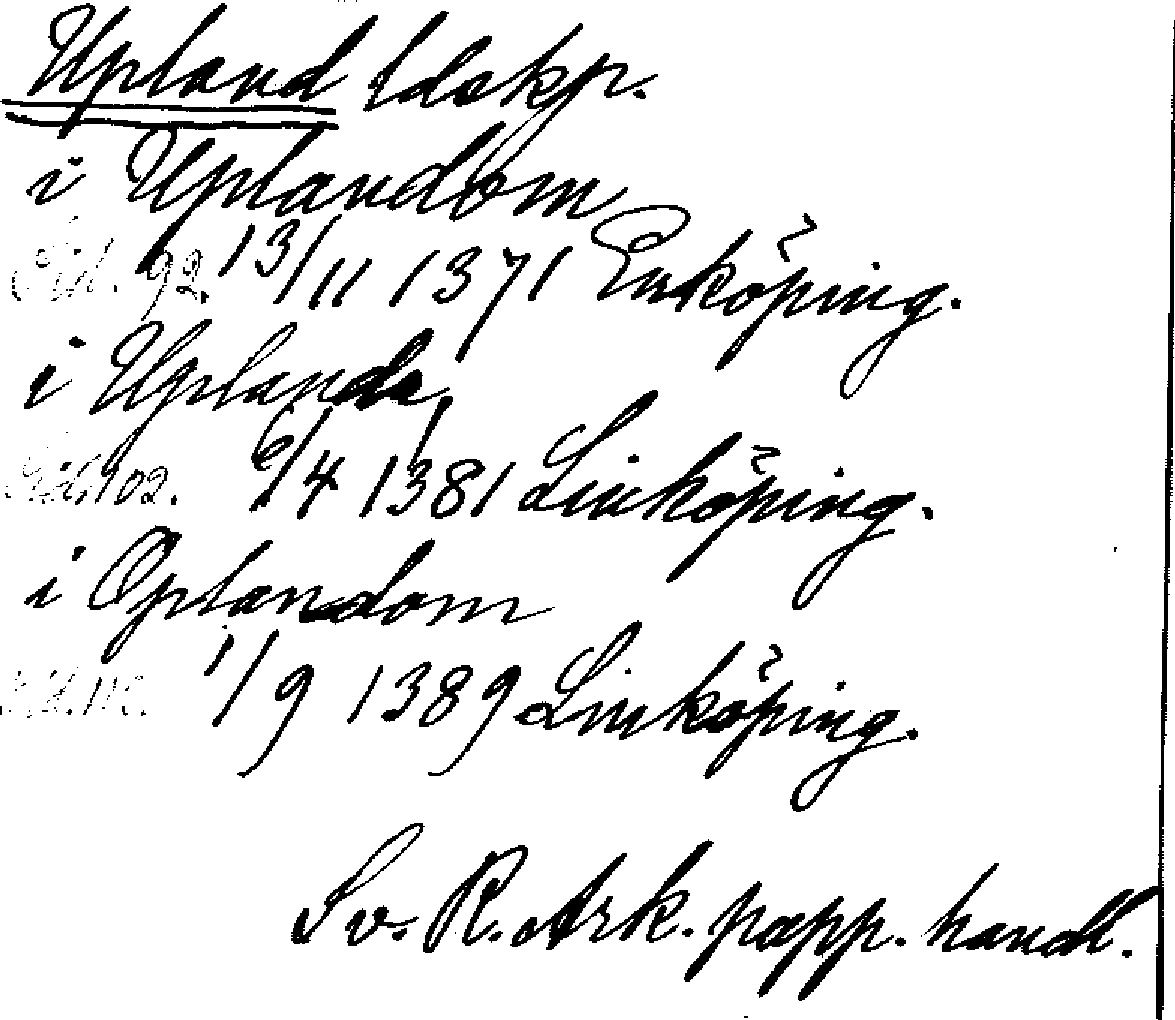 Upland ldskp.
i Uplandom
Sid. 92. 13/11 1371 Enköping.
i Uplanda
Sid. 102. 6/4 1381 Linköping.
i Oplandom
Sid. 1/9 1389 Linköping.
Sv. R. Ark. papp. handl.